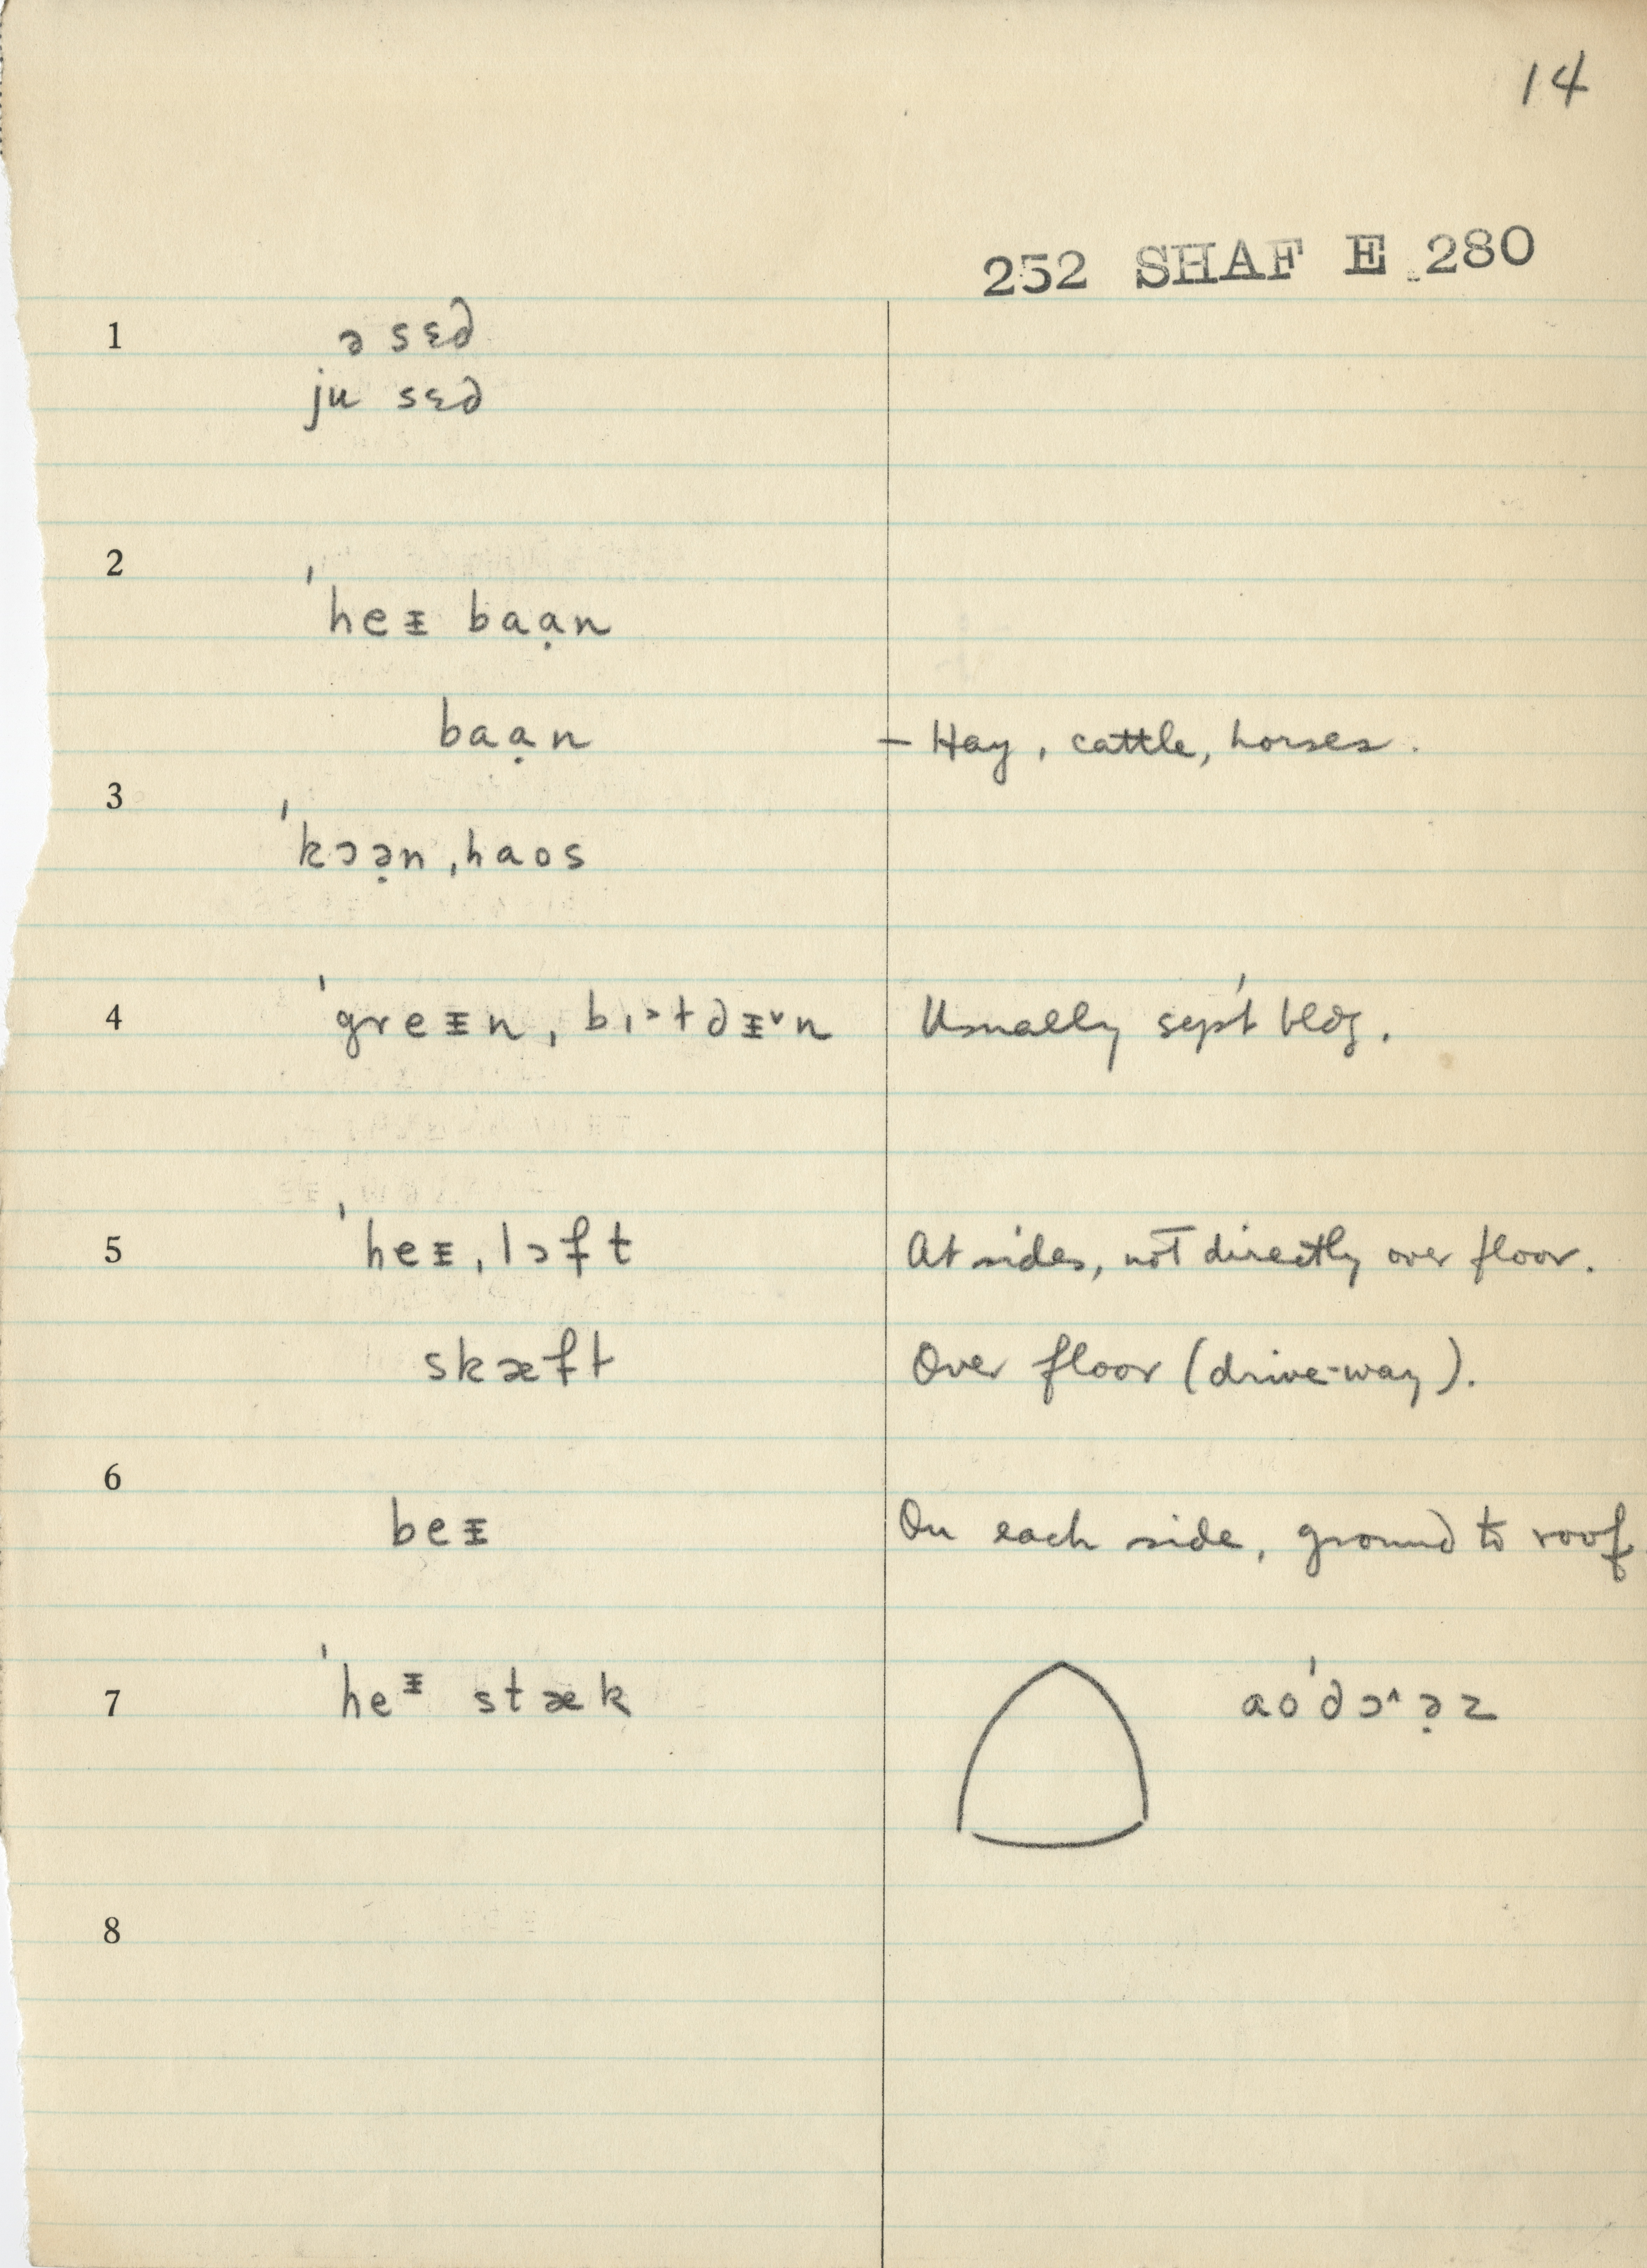 14
252 SHAF E 280
1 ə sɛd
ju sɛd
2 ˈheᵻ baạn
baạn – Hay, cattle, horses.
3 ˈkɔə̣n ˌhaos
4 ˈgreᵻn ˌbɪ˃tdᵻ˅n Usually sep't bldg.
5 ˈheᵻ ˌlɔft At sides, not directly over floor.
skæft Over floor (drive-way).
6 beᵻ On each side, ground to roof
7 ˈheᵻ stæk aoˈdɔ˄ə̣z
8